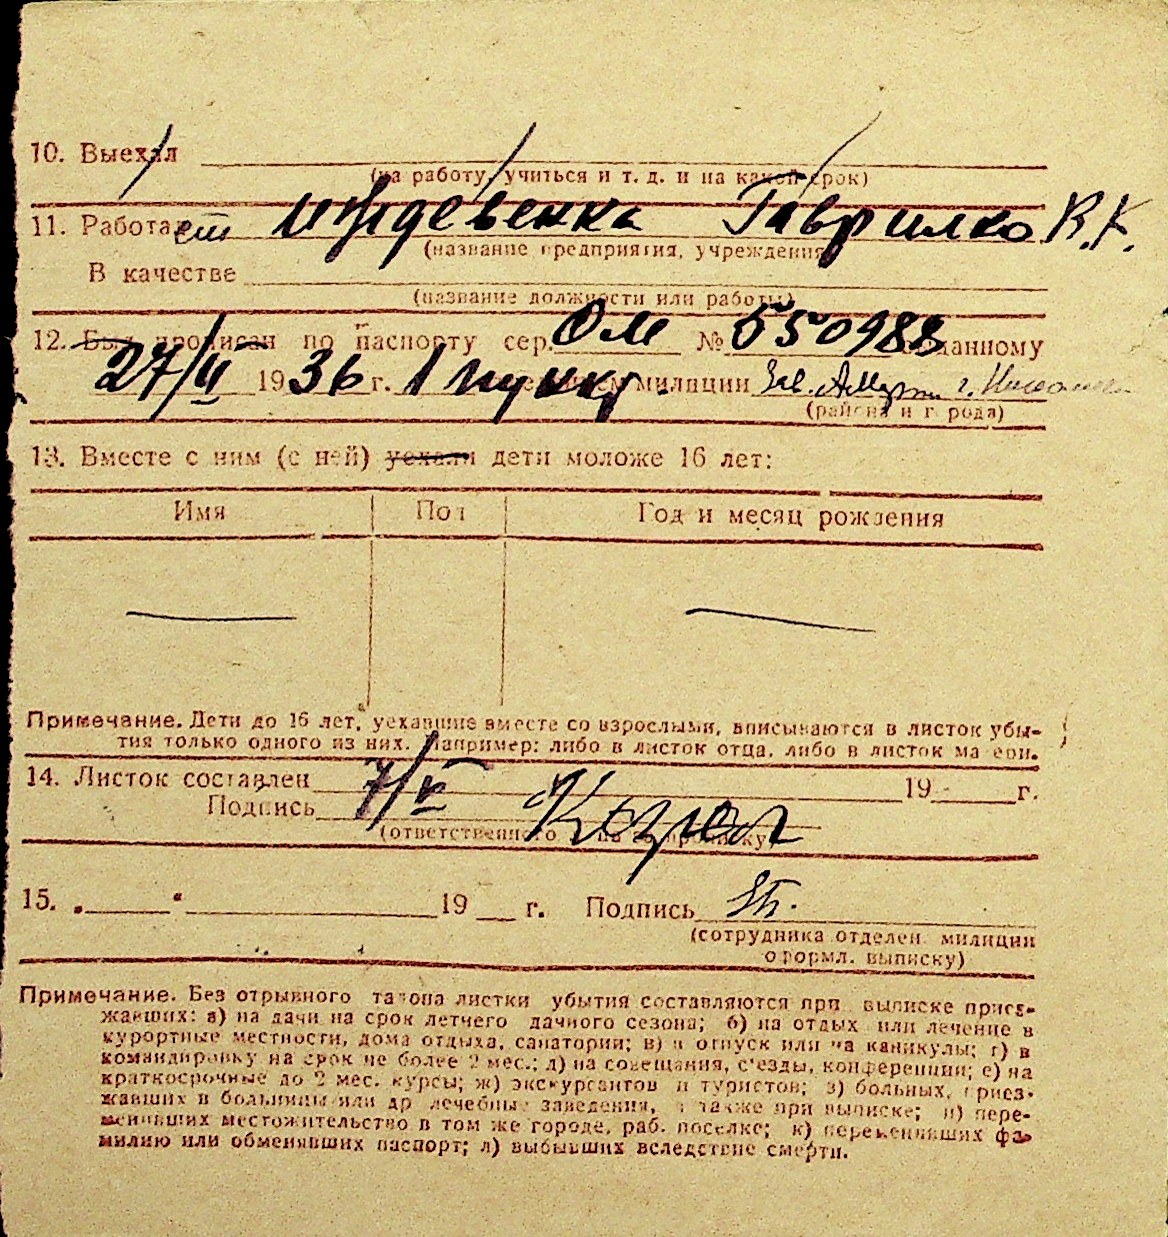 10. Выехал
(на работу, учиться и т. д. и на какой срок)
11. Работает иждевенка Гаврилко В.К.
(название предприятия, учреждения)
В качестве
(название должности или работы)
12. Был прописан по паспорту сер. ОМ № 550988 выданному
27/II 1936 г. 1 пункт. отделением милиции г.
(района и города)
13. Вместе с ним (с ней) уехали дети моложе 16 лет:
Имя Пол Год и месяц рождения
Примечание. Дети до 16 лет, уехавшие вместе со взрослыми, вписываются в листок убы-
тия только одного из них. Например: либо в листок отца, либо в листок матери.
14. Листок составлен 7/V 19 г.
Подпись
(ответственного за прописку)
15. „ “ 19 г. Подпись
(сотрудника отделен. милиции
оформл. выписку)
Примечание. Без отрывного талона листки убытия составляются при выписке приез-
жавших: а) на дачи на срок летнего дачного сезона; б) на отдых или лечение в
курортные местности, дома отдыха, санатории; в) в отпуск или на каникулы; г) в
командировку на срок не более 2 мес.; д) на совещания, съезды, конференции; е) на
краткосрочные до 2 мес. курсы; ж) экскурсантов и туристов; з) больных, приез-
жавших в больницы или др лечебные заведения, а также при выписке; и) пере-
менивших местожительство в том же городе, раб. поселке; к) переменивших фа-
милию или обменявших паспорт; л) выбывших вследствие смерти.